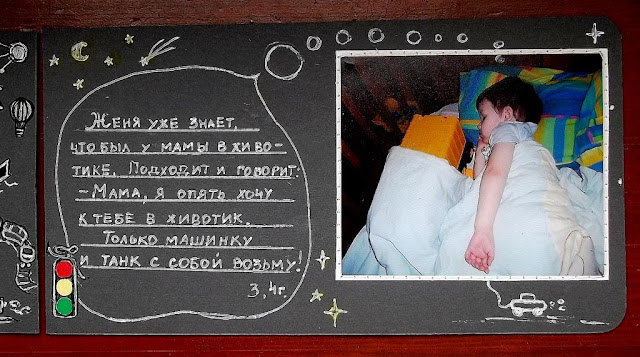 Женя уже знает,
что был у мамы в живо-
тике. Подходит и говорит:
- Мама, я опять хочу
к тебе в животик.
Только машинку
и танк с собой возьму!
3,4г.